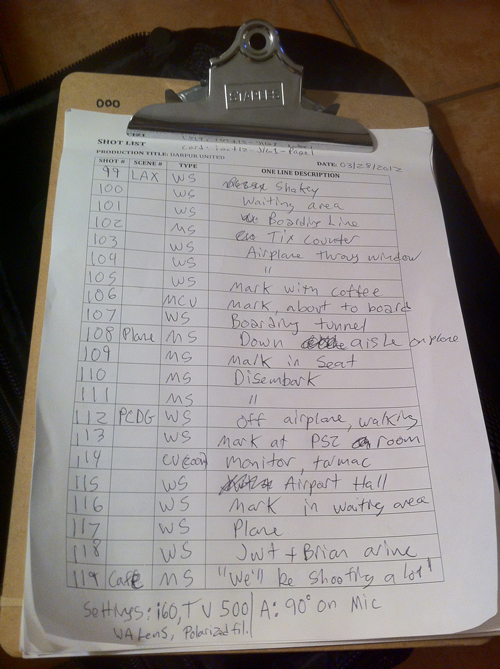 000
STAPLES
SHOT LIST
PRODUCTION TITLE: DARFUR UNITED DATE: 03/28/2012
SHOT # SCENE # TYPE ONE LINE DESCRIPTION
99 LAX WS Shakey
100 WS Waiting area
101 WS Boarding Line
102 MS Tix Counter
103 WS Airplane throug window
104 WS "
105 WS Mark with coffee
106 MCU Mark, about to board
107 WS Boarding tunnel
108 Plane MS Down aisle on plane
109 MS Mark in Seat
110 MS Disembark
111 MS "
112 PCDG WS Off airplane, walking
113 WS Mark at PSZ room
114 CU (zoom) Monitor, tarmac
115 WS Airport Hall
116 WS Mark in waiting area
117 WS Plane
118 WS + Brian
119 Cafe MS "We'll be shooting a lot"
Settings: i60, TV 500 / A: 90° on Mic
WA Lens, Polarized fil.